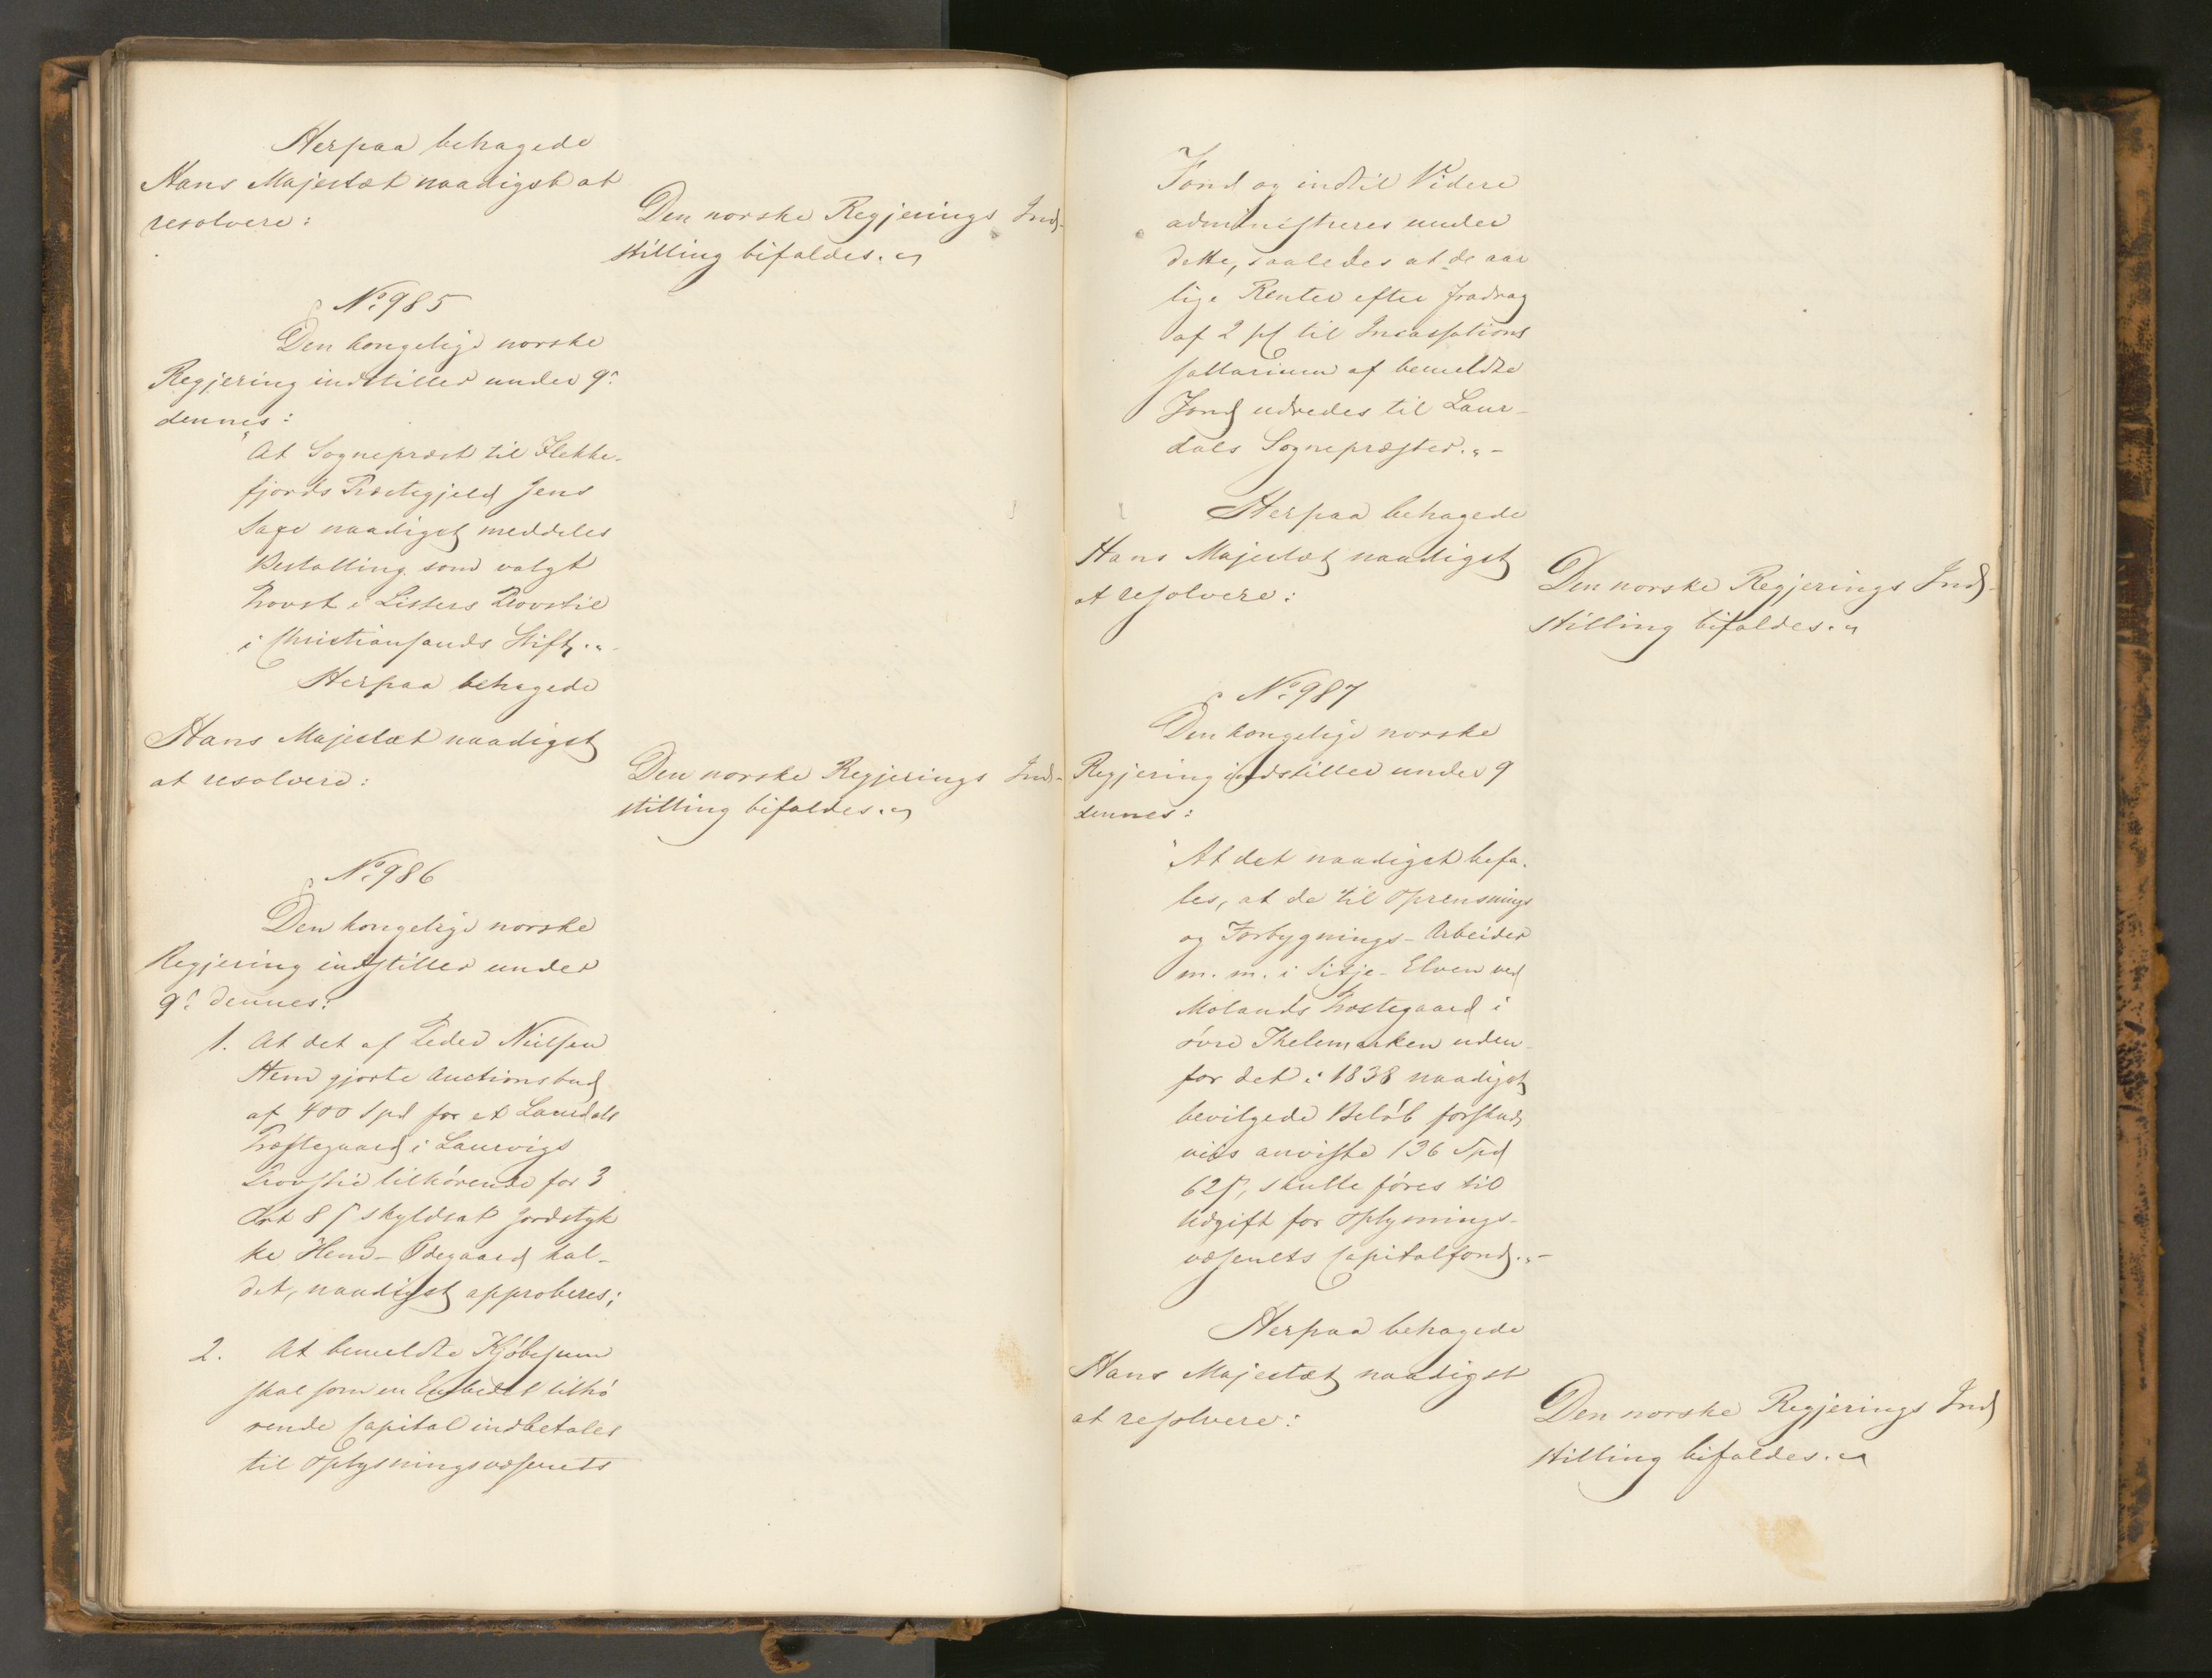 Herpaa behagede
Hans Majestæt naadigst at
resolvere:
Den norske Regjerings Ind-
stilling bifaldes."
No. 985
Den kongelige norske
Regjering indstiller under 9de
dennes:
"At Sogneprest til Flekke-
fjords Præstegjeld Jens
naadigst meddeles
Bestalling som valgt
Provst i Listers Provstie
i Christiansands Stift."
Herpaa behagede
Hans Majestæt naadigst
at resolvere:
Den norske Regjerings Ind-
stilling bifaldes."
No. 986
Den kongelige norske
Regjering indstiller under
9de dennes:
1. At det af Peder Nielsen
Hem gjorte Auctionsbud
af 400 Spd for et Laurdals
Præstegaard i Laurvigs
Provstie tilhörende for 3
Ort 8 ſ skyldsat Jordstyk
ke Hem-Ödegaard kal-
det, naadigst approberes;
2. At bemeldte Kjöbesum
skal som en Embedet tilhö
rende Capital indbetales
til Oplysningsvæsenets
Fond og indtil Videre
administreres under
dette, saaledes at de aar
lige Renter efter Fradrag
af 2 pC til Incassations
sallarium af bemeldte
Fond udredes til Laur-
dals Sognepræster."-
Herpaa behagede
Hans Majestæt naadigst
at resolvere:
Den norske Regjerings Ind-
stilling bifaldes."
No. 987
Den kongelige norske
Regjering indstiller under 9
dennes:
"At det naadigst befa-
les, at de til Oprensnings
og Forbygnings-Arbeider
m. m. i -Elven ved
Molands Præstegaard i
övre Thelemarken uden-
for det i 1838 naadigst
bevilgede Belöb forskuds
viis anviste 136 Spd
62 ſ, skulle föres til
Udgift for Oplysnings-
væsenets Capitalfond."-
Herpaa behagede
Hans Majestæt naadigst
at resolvere:
Den norske Regjerings Ind
stilling bifaldes."